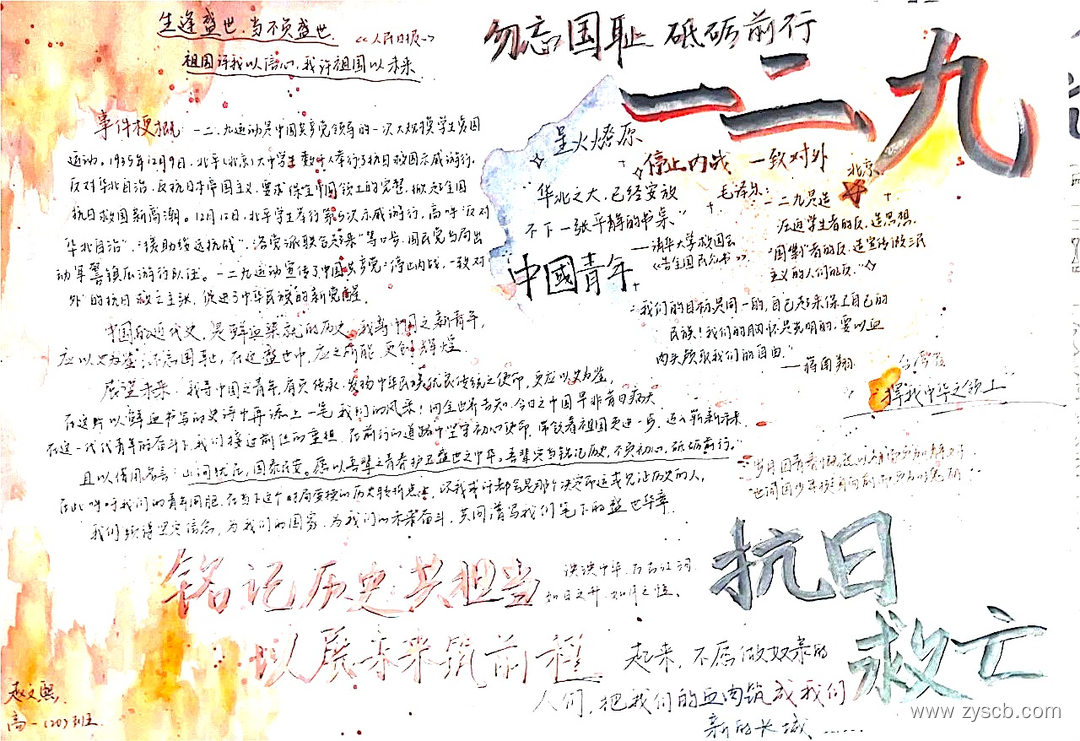 生逢盛世,当不负盛世.
《人民日报》
祖国许我以信心,我许祖国以未来
勿忘国耻 砥砺前行
一二九
事件梗概 一二.九运动是中国共产党领导的一次大规模学生爱国
运动。1935年12月9日,北平(北京)大中学生数千人举行了抗日救国示威游行,
反对华北自治,反抗日本帝国主义,要求保全中国领土的完整,掀起全国
抗日救国新高潮。12月12日,北平学生举行第5次示威游行,高呼"反对
华北自治""援助绥远抗战""各党派联合起来"等口号,国民党当局出
动军警镇压游行队伍。一二九运动宣传了中国共产党"停止内战,一致对
外"的抗日救亡主张,促进了中华民族的新觉醒.
中国的近代史,是鲜血染就的历史,我辈中国之新青年,
应以史为鉴,不忘国耻,在这盛世中,应之所能,更创辉煌
展望未来,我辈中国之青年,有责传承、发扬中华民族优良传统之使命,更应以史为鉴,
在这片以鲜血书写的史诗中再添上一笔我们的风采!向全世界告知,今日之中国早非昔日病夫
在这一代代青年的奋斗下,我们接过前任的重担,在前行的道路中坚守初心使命,带领着祖国更进一步,迈向崭新未来.
且以借用名言:山河犹在,国泰民安。愿以吾辈之青春护卫盛世之中华,吾辈定当铭记历史,不负初心,砥砺前行."
在此呼吁我们的青年同胞,在当下这个时局变换的历史转折点,
我们须得坚定信念,为我们的国家,为我们的未来奋斗,共同谱写我们笔下的盛世华章.
星火燎原
"华北之大,已经安放
不下一张平静的书桌"
——清华大学救国会
《告全国民众书》
中國青年
停止内战 一致对外
北京
毛泽东:
一二九是造
主义的人们的反."
"我们的目标是同一的,自己起来保卫自己的
民族!我们的胸怀是光明的,要以血
肉头颅换我们的自由."
——蒋南翔
"挥我中华之领土"
铭记历史共担当
以展未来筑前程
泱泱中华,
如日之升,如月之恒。
抗日
救亡
起来,不愿做奴隶的
人们,把我们的血肉筑成我们
新的长城……
赵文熙
高一(20)班.
www.zyscb.com